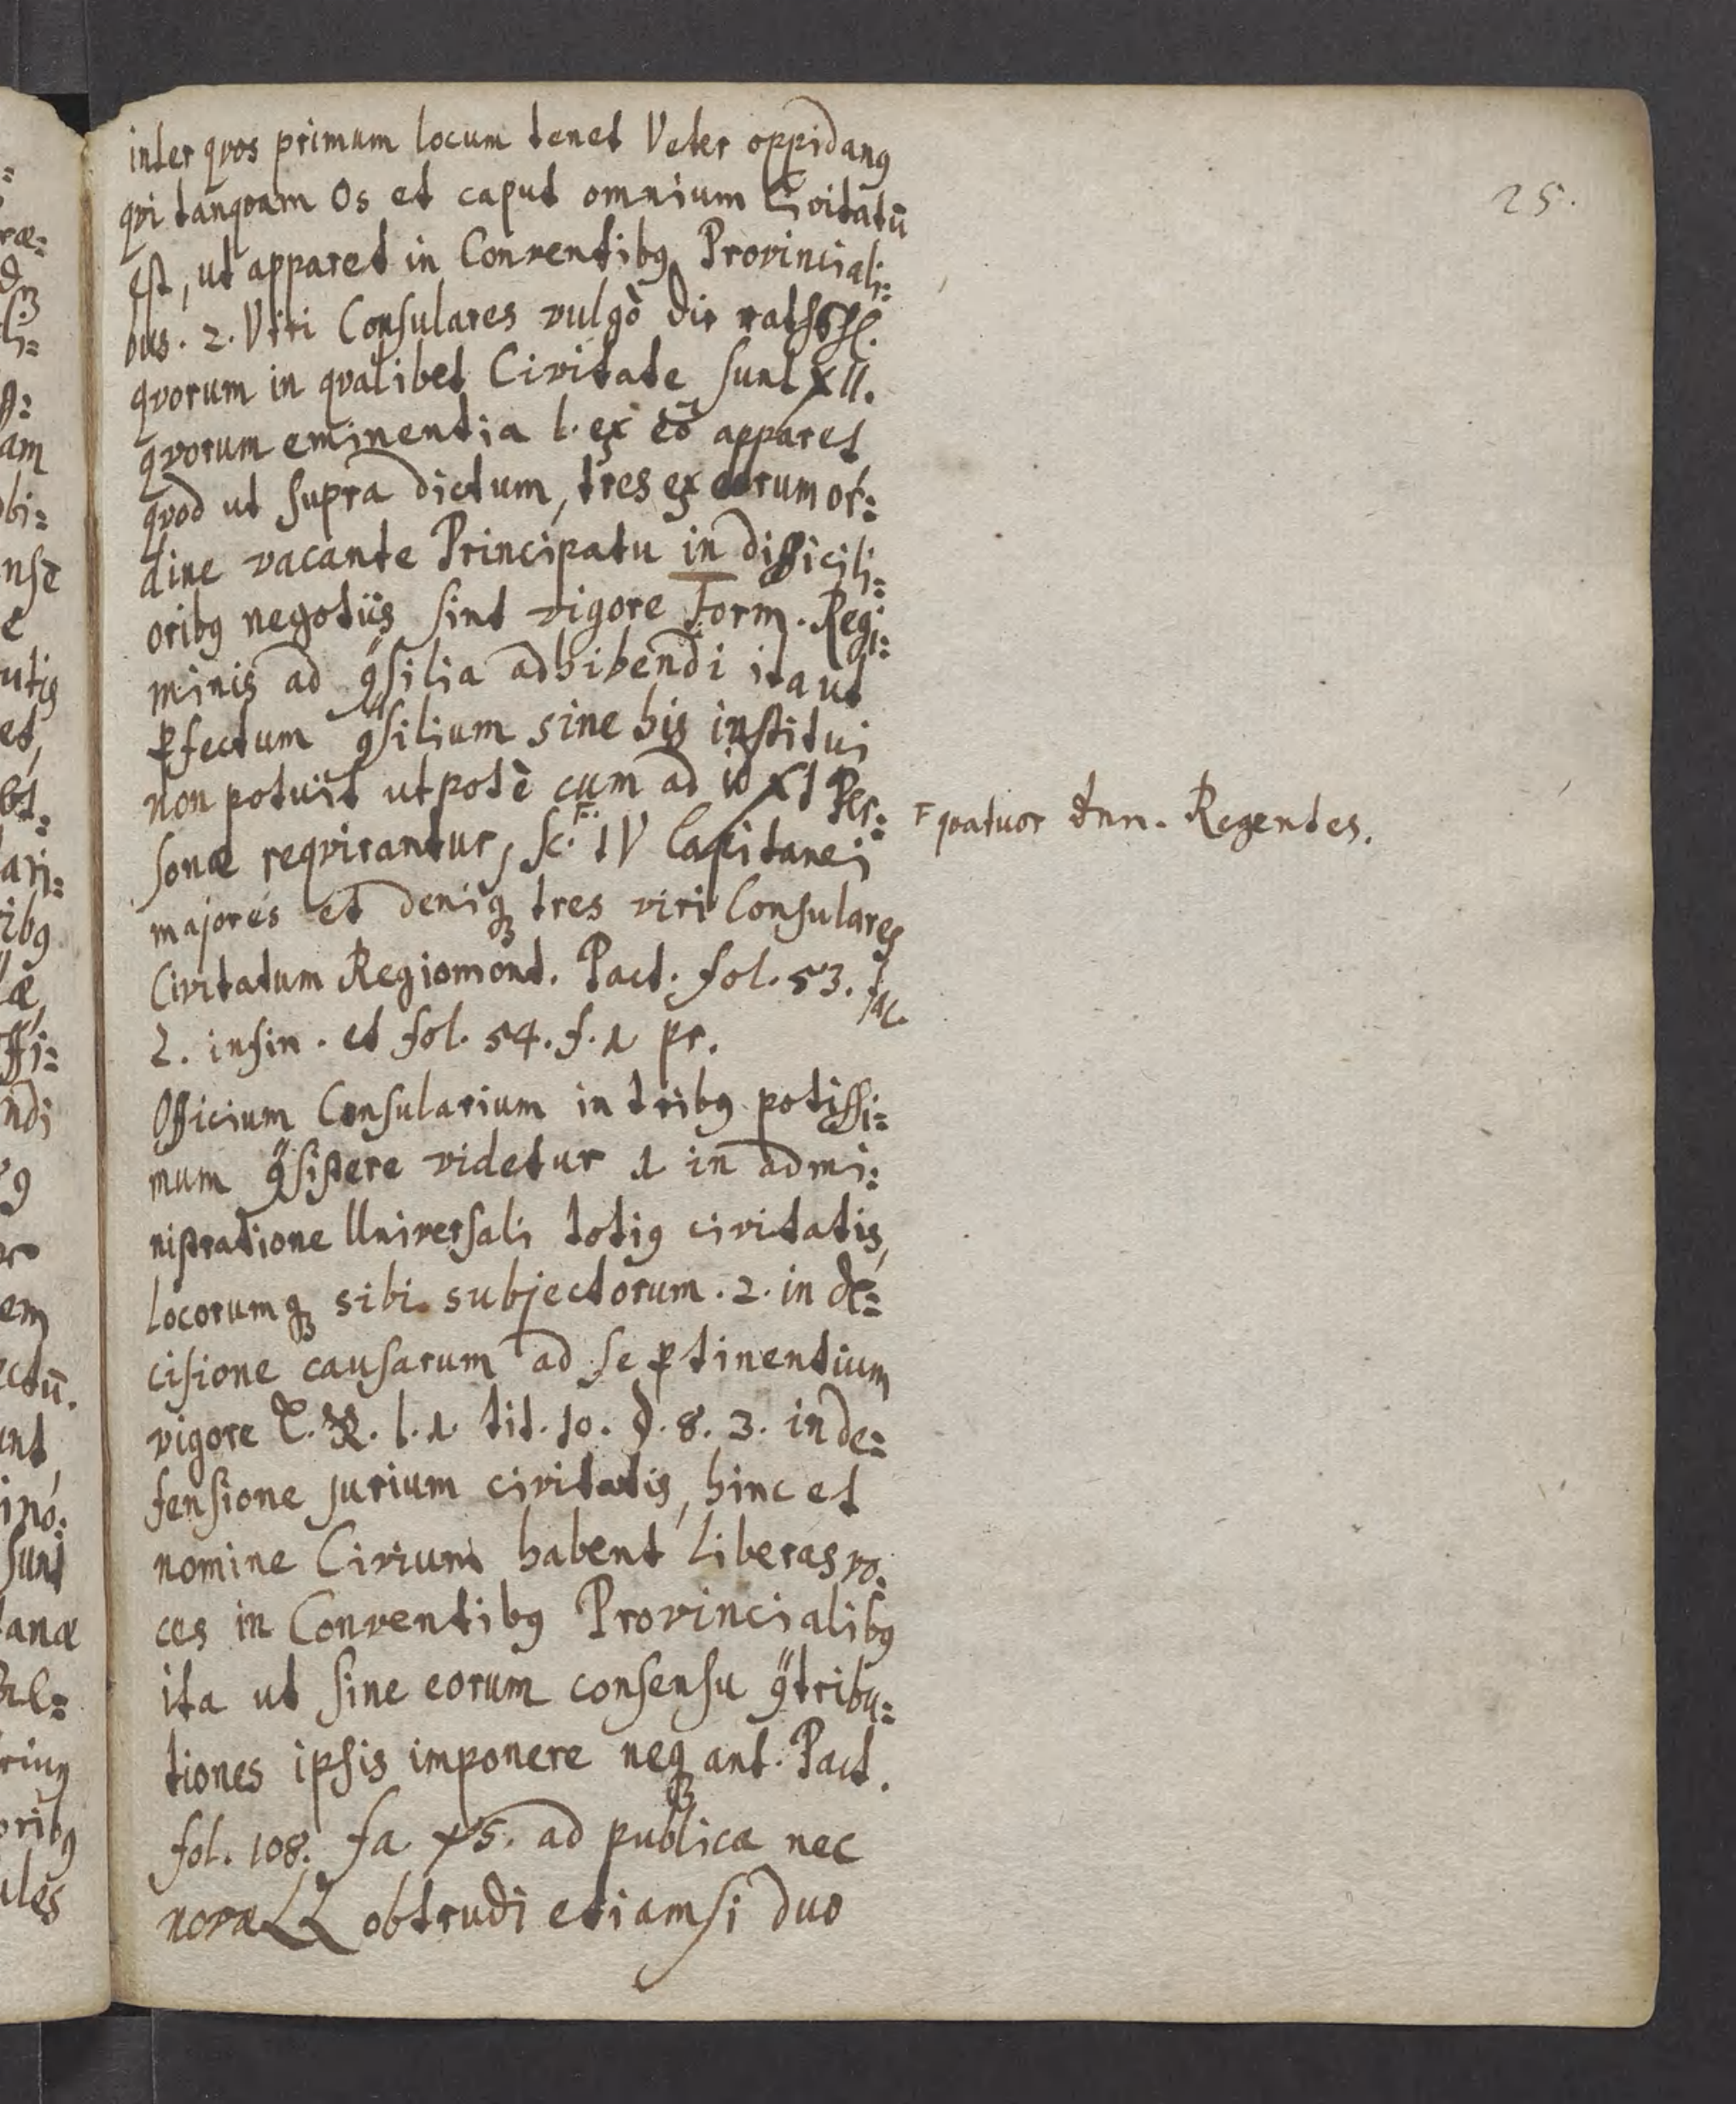 25.
inter qvos primum locum tenet Veter oppidanꝯ
qvi tanqvam Os et caput omnium Civitatū
est, ut apparet in Conventibꝯ Provinciali:
bus. 2. Viri Consulares vulgò die
qvorum in qvalibet Civitate sunt XII.
qvorum eminentia l. ex eō apparet
qvod ut supra dictum, tres ex eorum or:
dine vacante Principatu in difficili:
oribꝯ negotiis sint vigore Form. Regi:
minis ad ꝯsilia adhibendi ita ut
ꝑfectum ꝯsilium sine his institui
non potuit utpotè cum ad id XI Per:
sonæ reqvirantur, sc. F. IV Capitanei
majores et deniqꝫ tres viri Consulares
Civitatum Regiomont. Pact. fol. 53. fac.
2. in fin. et fol. 54. f. 1 pr.
Officium Consularium in tribꝯ potissi:
mum ꝯsistere videtur 1 in admi:
nistratione Universali totiꝯ civitatis,
locorumqꝫ sibi subjectorum. 2. in de:
cisione causarum ad se ꝑtinentium
vigore L. R. l. 1. tit. 10. d. 8. 3. in de:
fensione jurium civitatis, hinc et
nomine Civium habent liberas vo:
ces in Conventibꝯ Provincialibꝯ
ita ut sine eorum consensu ꝯtribu:
tiones ipsis imponere neqꝫ ant. Pact.
fol. 108. fa ad publica nec
novæ LL obtrudi etiamsi duo
F qvatuor dnn. Regentes.